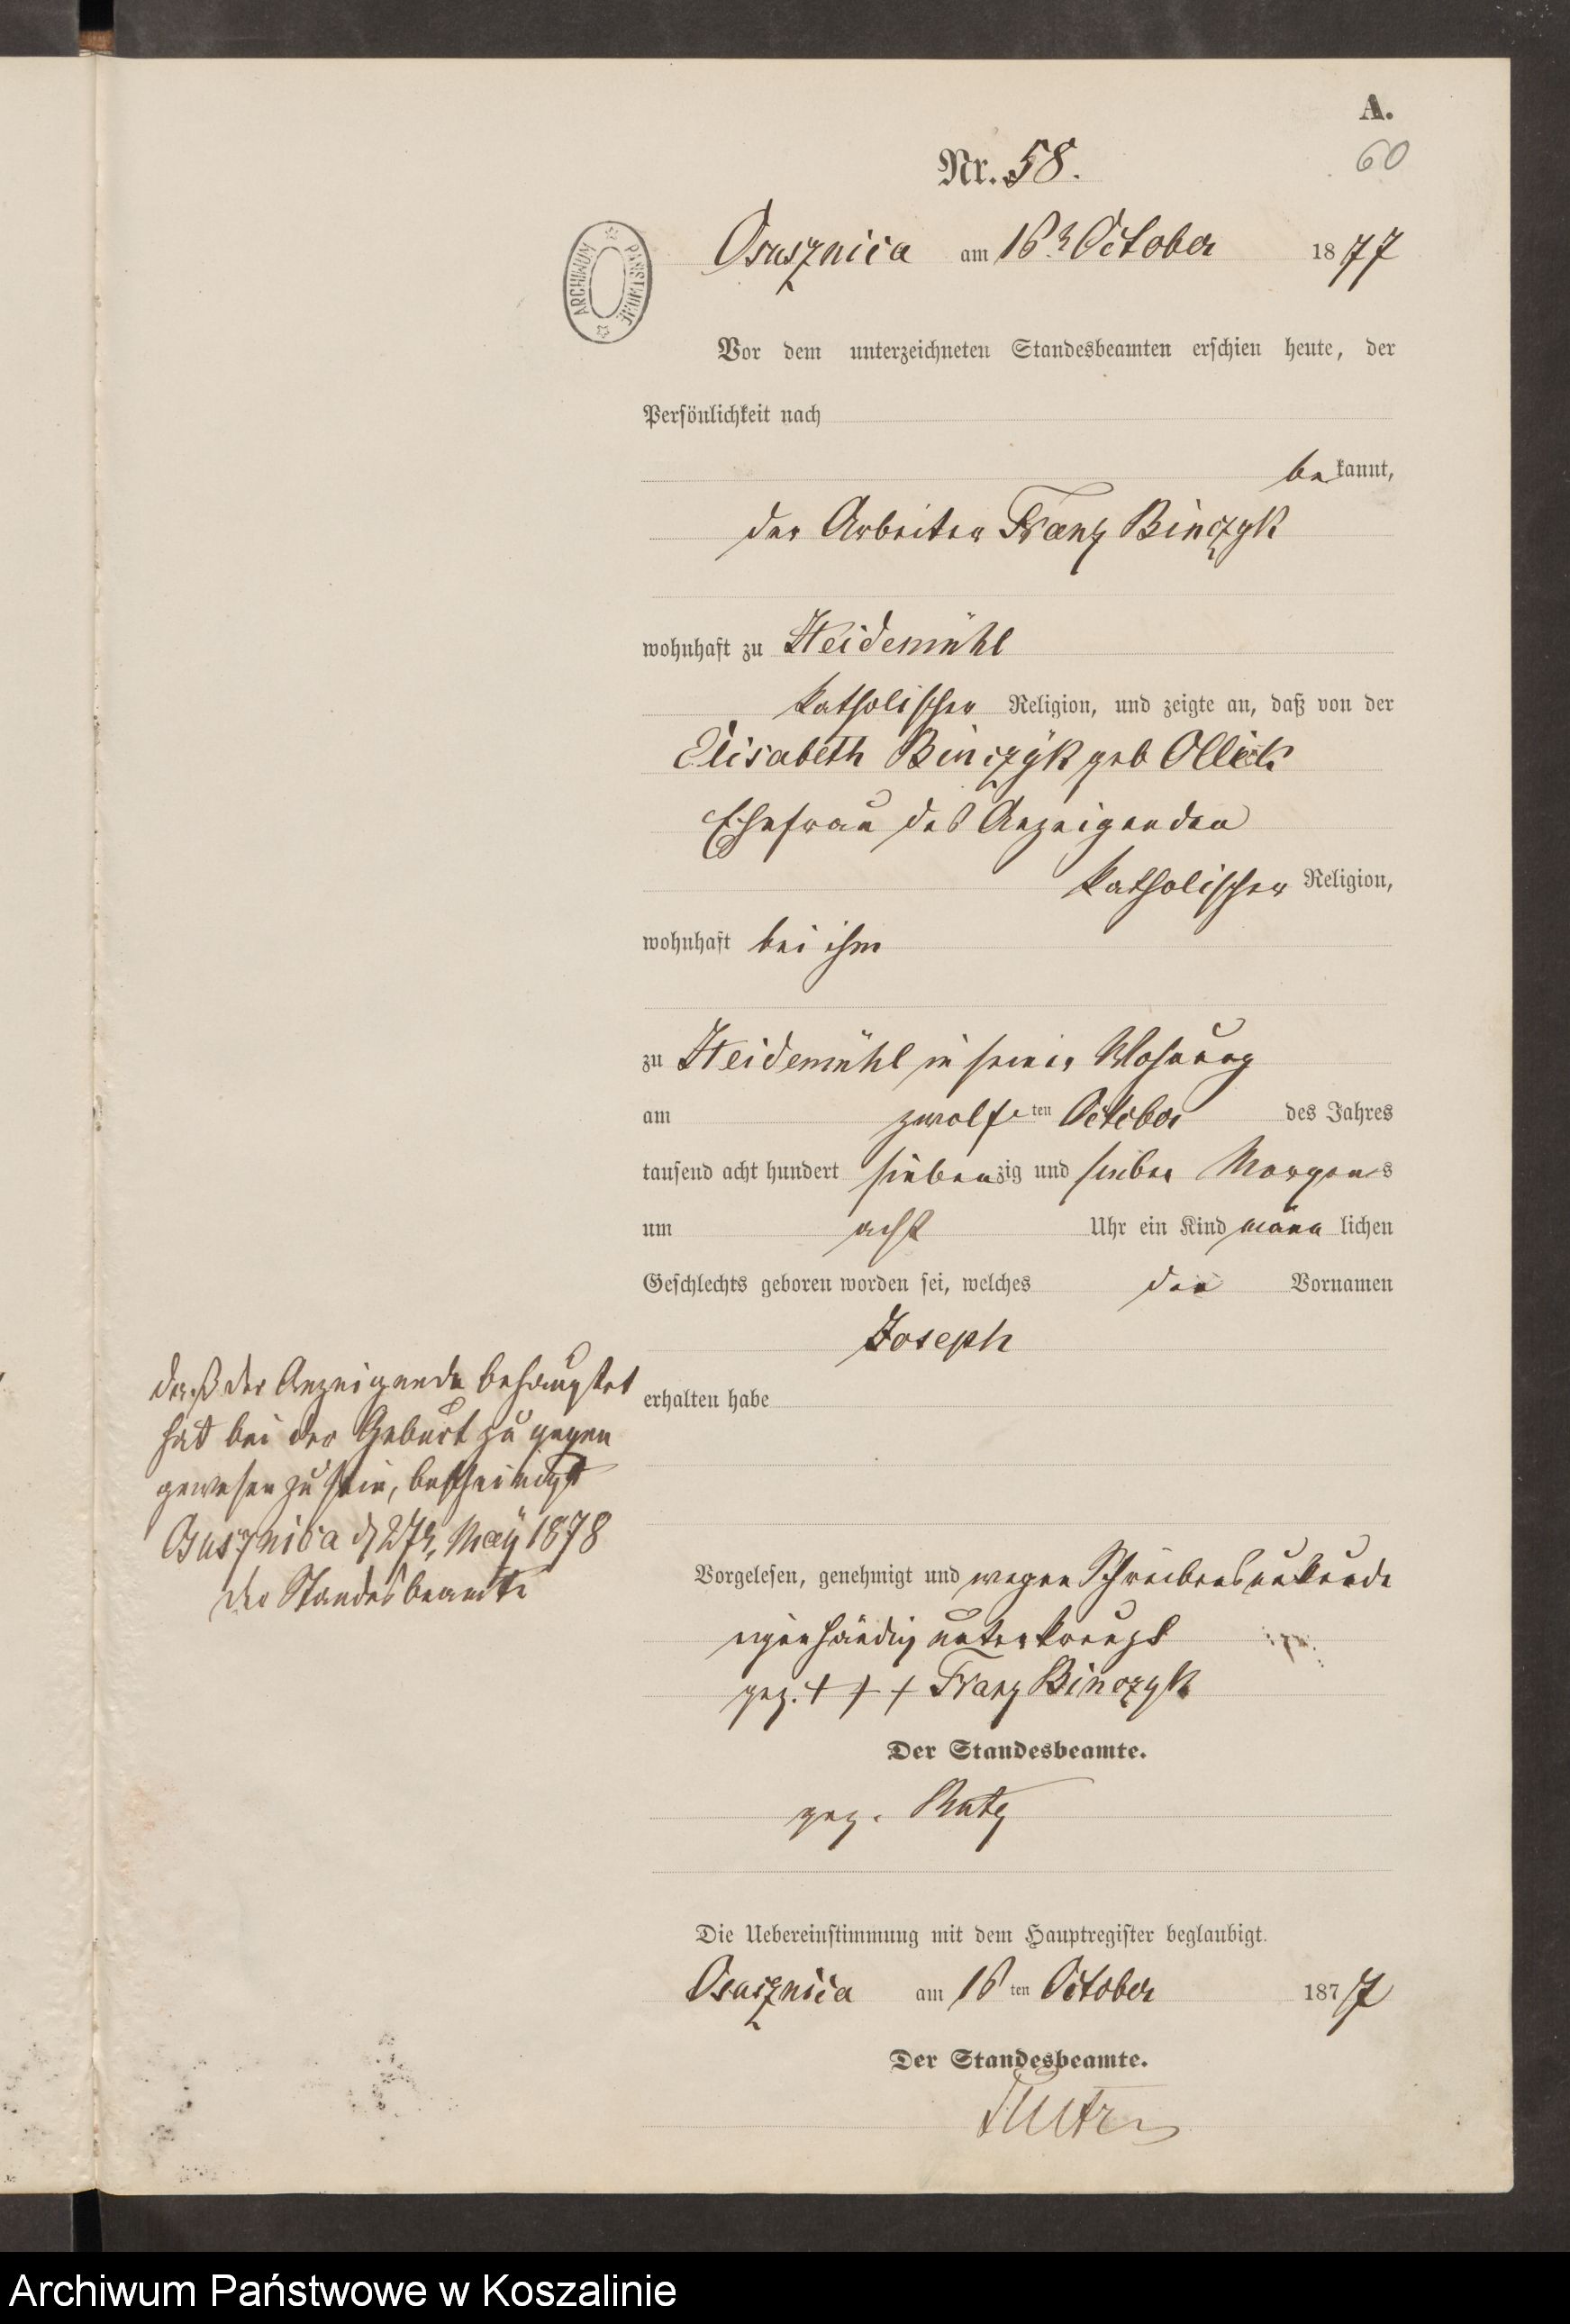 A.
60
Nr. 58.
ARCHIWUM PAŃSTWOWE
Osusznica am 16t October 1877
Vor dem unterzeichneten Standesbeamten erschien heute, der
Persönlichkeit nach
bekannt,
der Arbeiter Franz Binczyk
wohnhaft zu Heidemühl
katholischer Religion, und zeigte an, daß von der
Elisabeth Binczyk geb
Ehefrau des Anzeigenden
katholischer Religion,
wohnhaft bei ihm
zu Heidemühl in seiner Wohnung
am zwölften October des Jahres
tausend acht hundert siebenzig und sieben Morgens
um acht Uhr ein Kind männlichen
Geschlechts geboren worden sei, welches den Vornamen
Joseph
erhalten habe
daß der Anzeigende behauptet
hat bei der Geburt zu gegen
gewesen zu sein, bescheinigt
Osusznica d 27t May 1878
der Standesbeamte
Vorgelesen, genehmigt und wegen Schreibensunkunde
eigenhändig unterkreuzt
gez. + + + Franz Binczyk
Der Standesbeamte.
gez.
Die Uebereinstimmung mit dem Hauptregister beglaubigt.
Osusznica am 16ten October 1877
Der Standesbeamte.
Archiwum Państwowe w Koszalinie